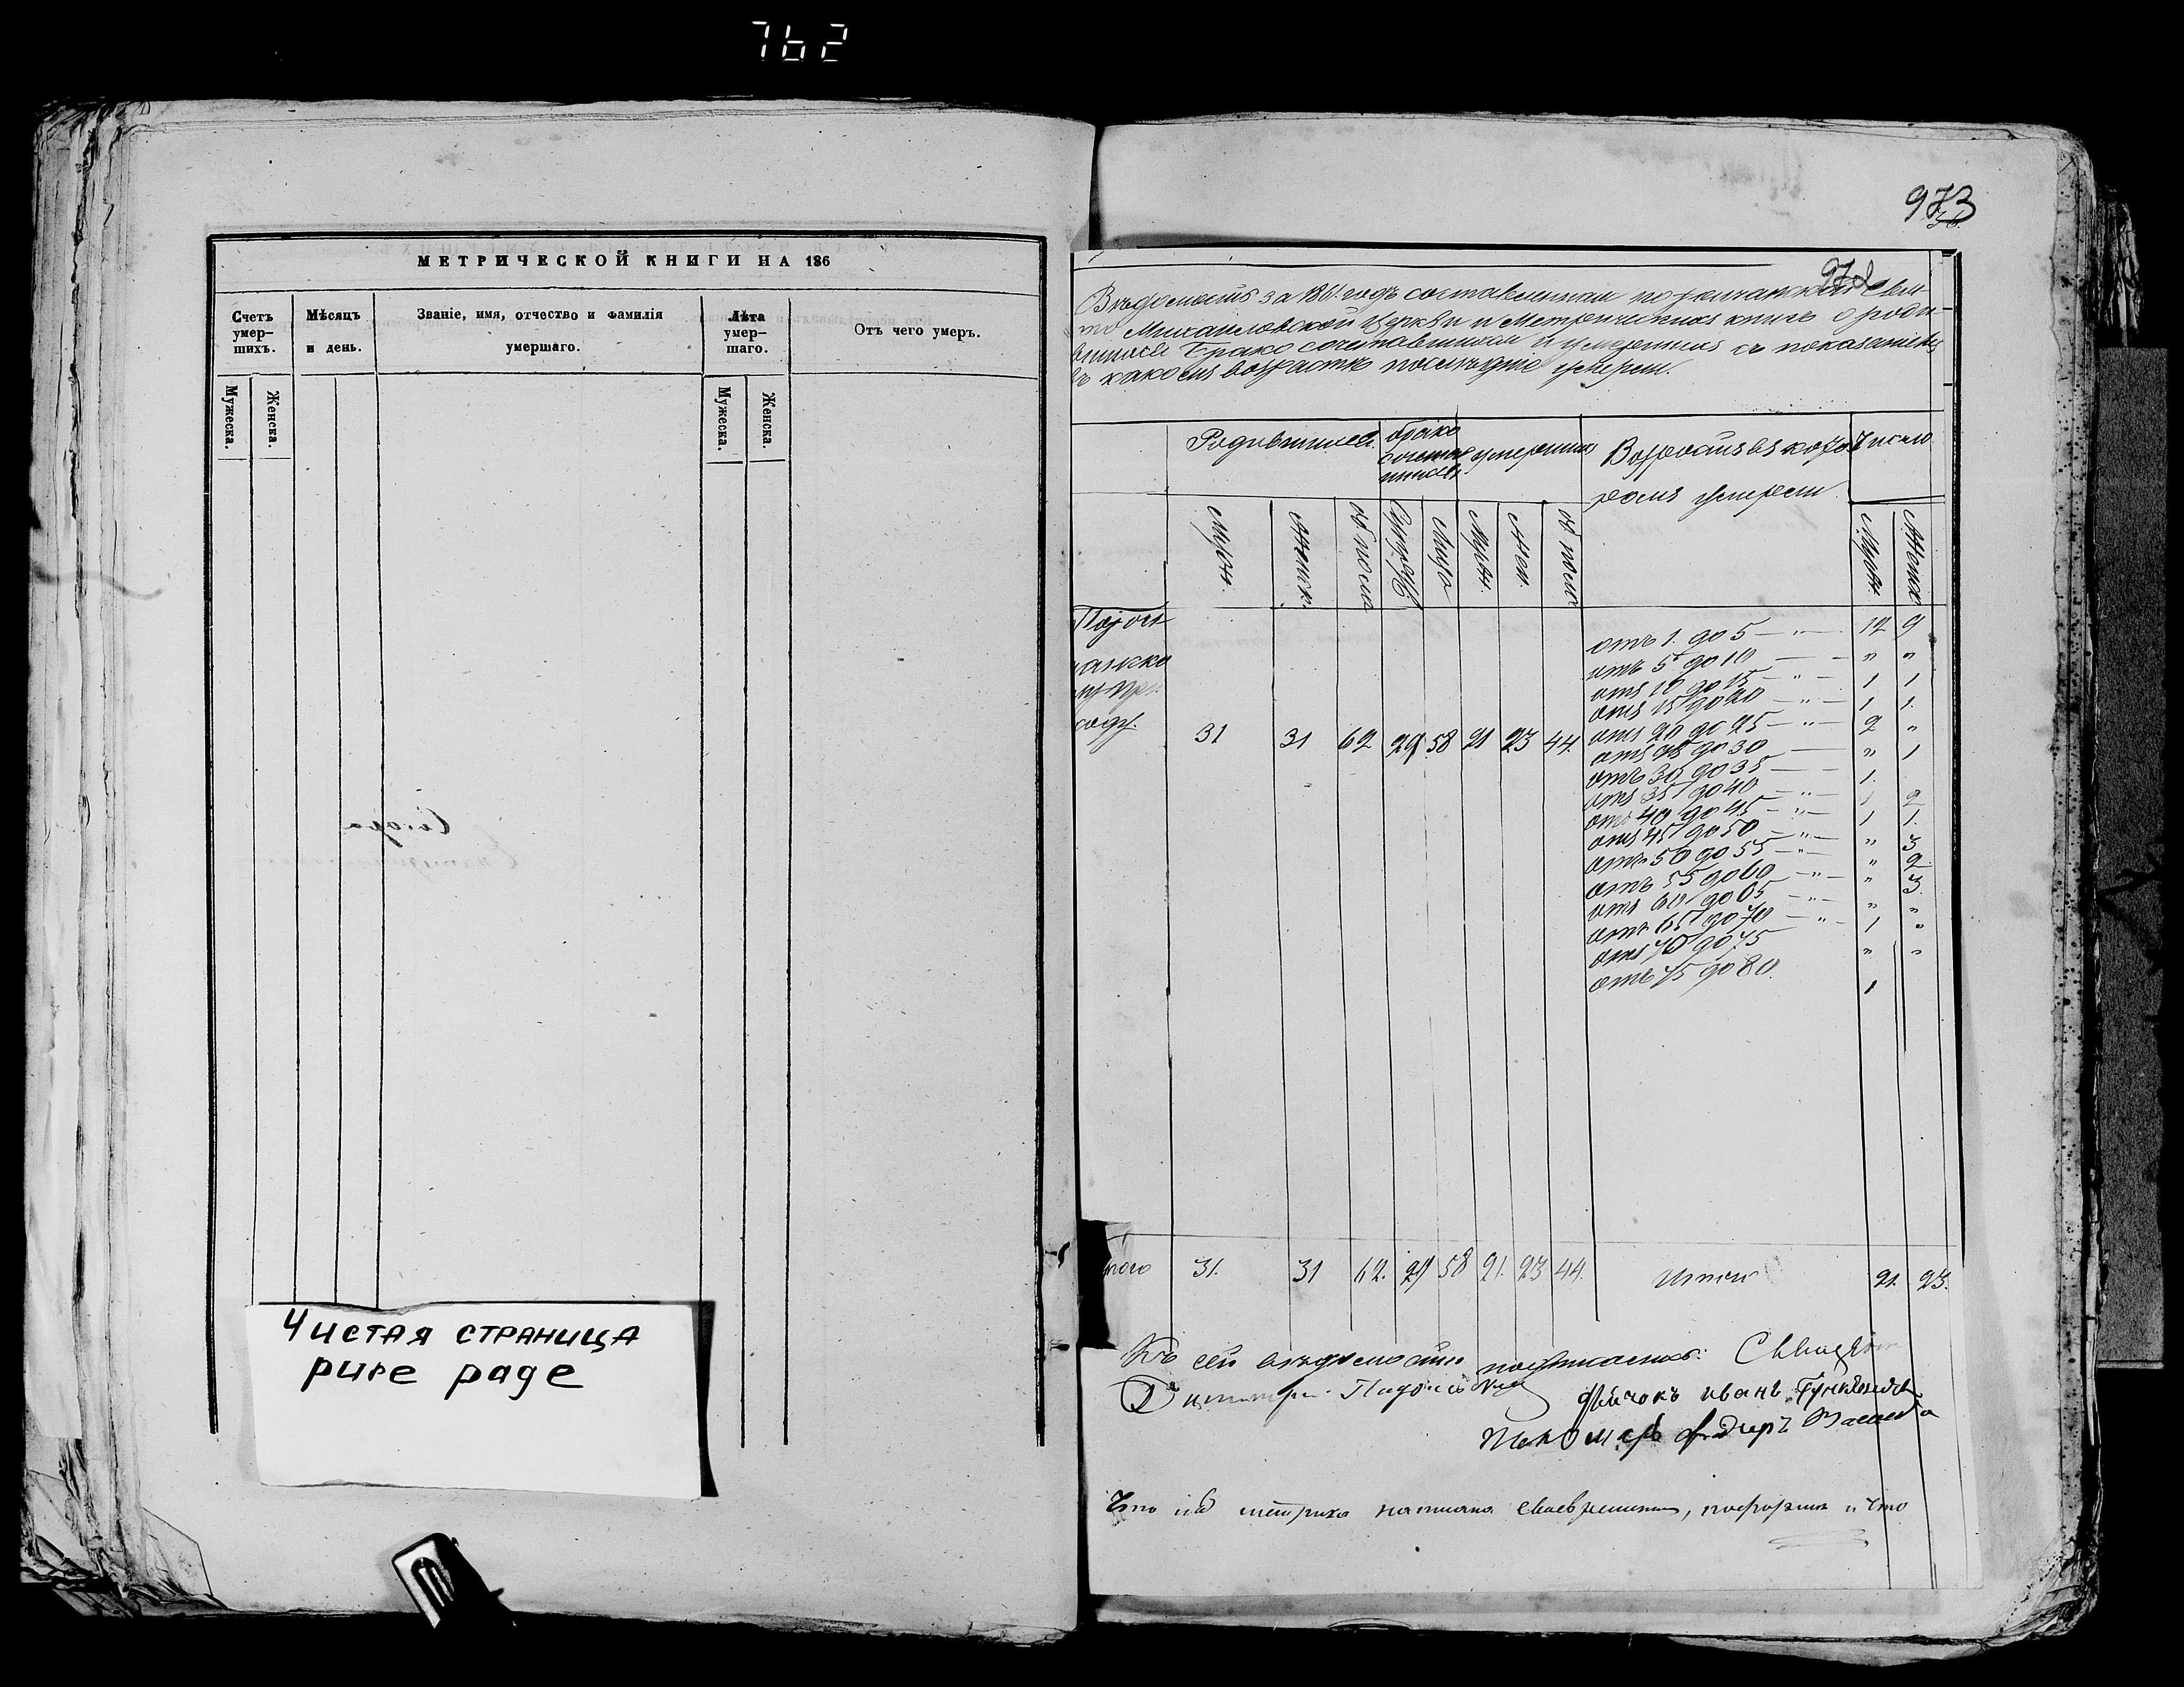 762
МЕТРИЧЕСКОЙ КНИГИ НА 186
Счетъ умер-шихъ.
Мѣсяцъ и день.
Званіе, имя, отчество и фамилія умершаго.
Лѣта умер-шаго.
Отъ чего умеръ.
Мужеска. Женска.
Мужеска. Женска.
Чистая страница
pure page
973
Вѣдомость за 1861 годъ составленная по
Михаиловской Церкви и Метрическихъ книгъ о роди
Брако сочетавшихся и умершихъ съ показаніемъ
въ какомъ возрастѣ послѣдніе умерли.
Родившихся. брако умершихъ Число
умерли
Муж. Женск. об. пола Лица Муж. Жен. об. пола Муж. Женск
отъ 1. до 5 — " — 12 9
отъ 5 до 10 — " "
отъ 10 до 15 — " — 1 1
отъ 15 до 20 — " — 1 1.
отъ 20 до 25 — " — 2 "
отъ 25 до 30 — " 1
отъ 30 до 35 — 1.
отъ 35 до 40 — " — 1 2
отъ 40 до 45 — " — 1 1.
отъ 45 до 50 — " — " 3
отъ 50 до 55 — " — " 2.
отъ 55 до 60 — " — " 3.
отъ 60 до 65 — " — " "
отъ 65 до 70 — " — 1 "
отъ 70 до 75 " "
отъ 75 до 80. 1
31 31 62 29 58 21 23 44.
31. 31 62. 29 58 21. 23 44. Итого 21. 23.
Къ сей вѣдомости подписались:
Димитрій
дьячокъ иванъ
Пономарь
Что сія метрика написана своевременно, по формѣ и что